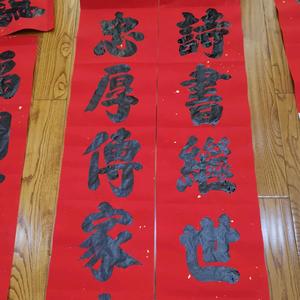 詩書繼世
忠厚傳家
福